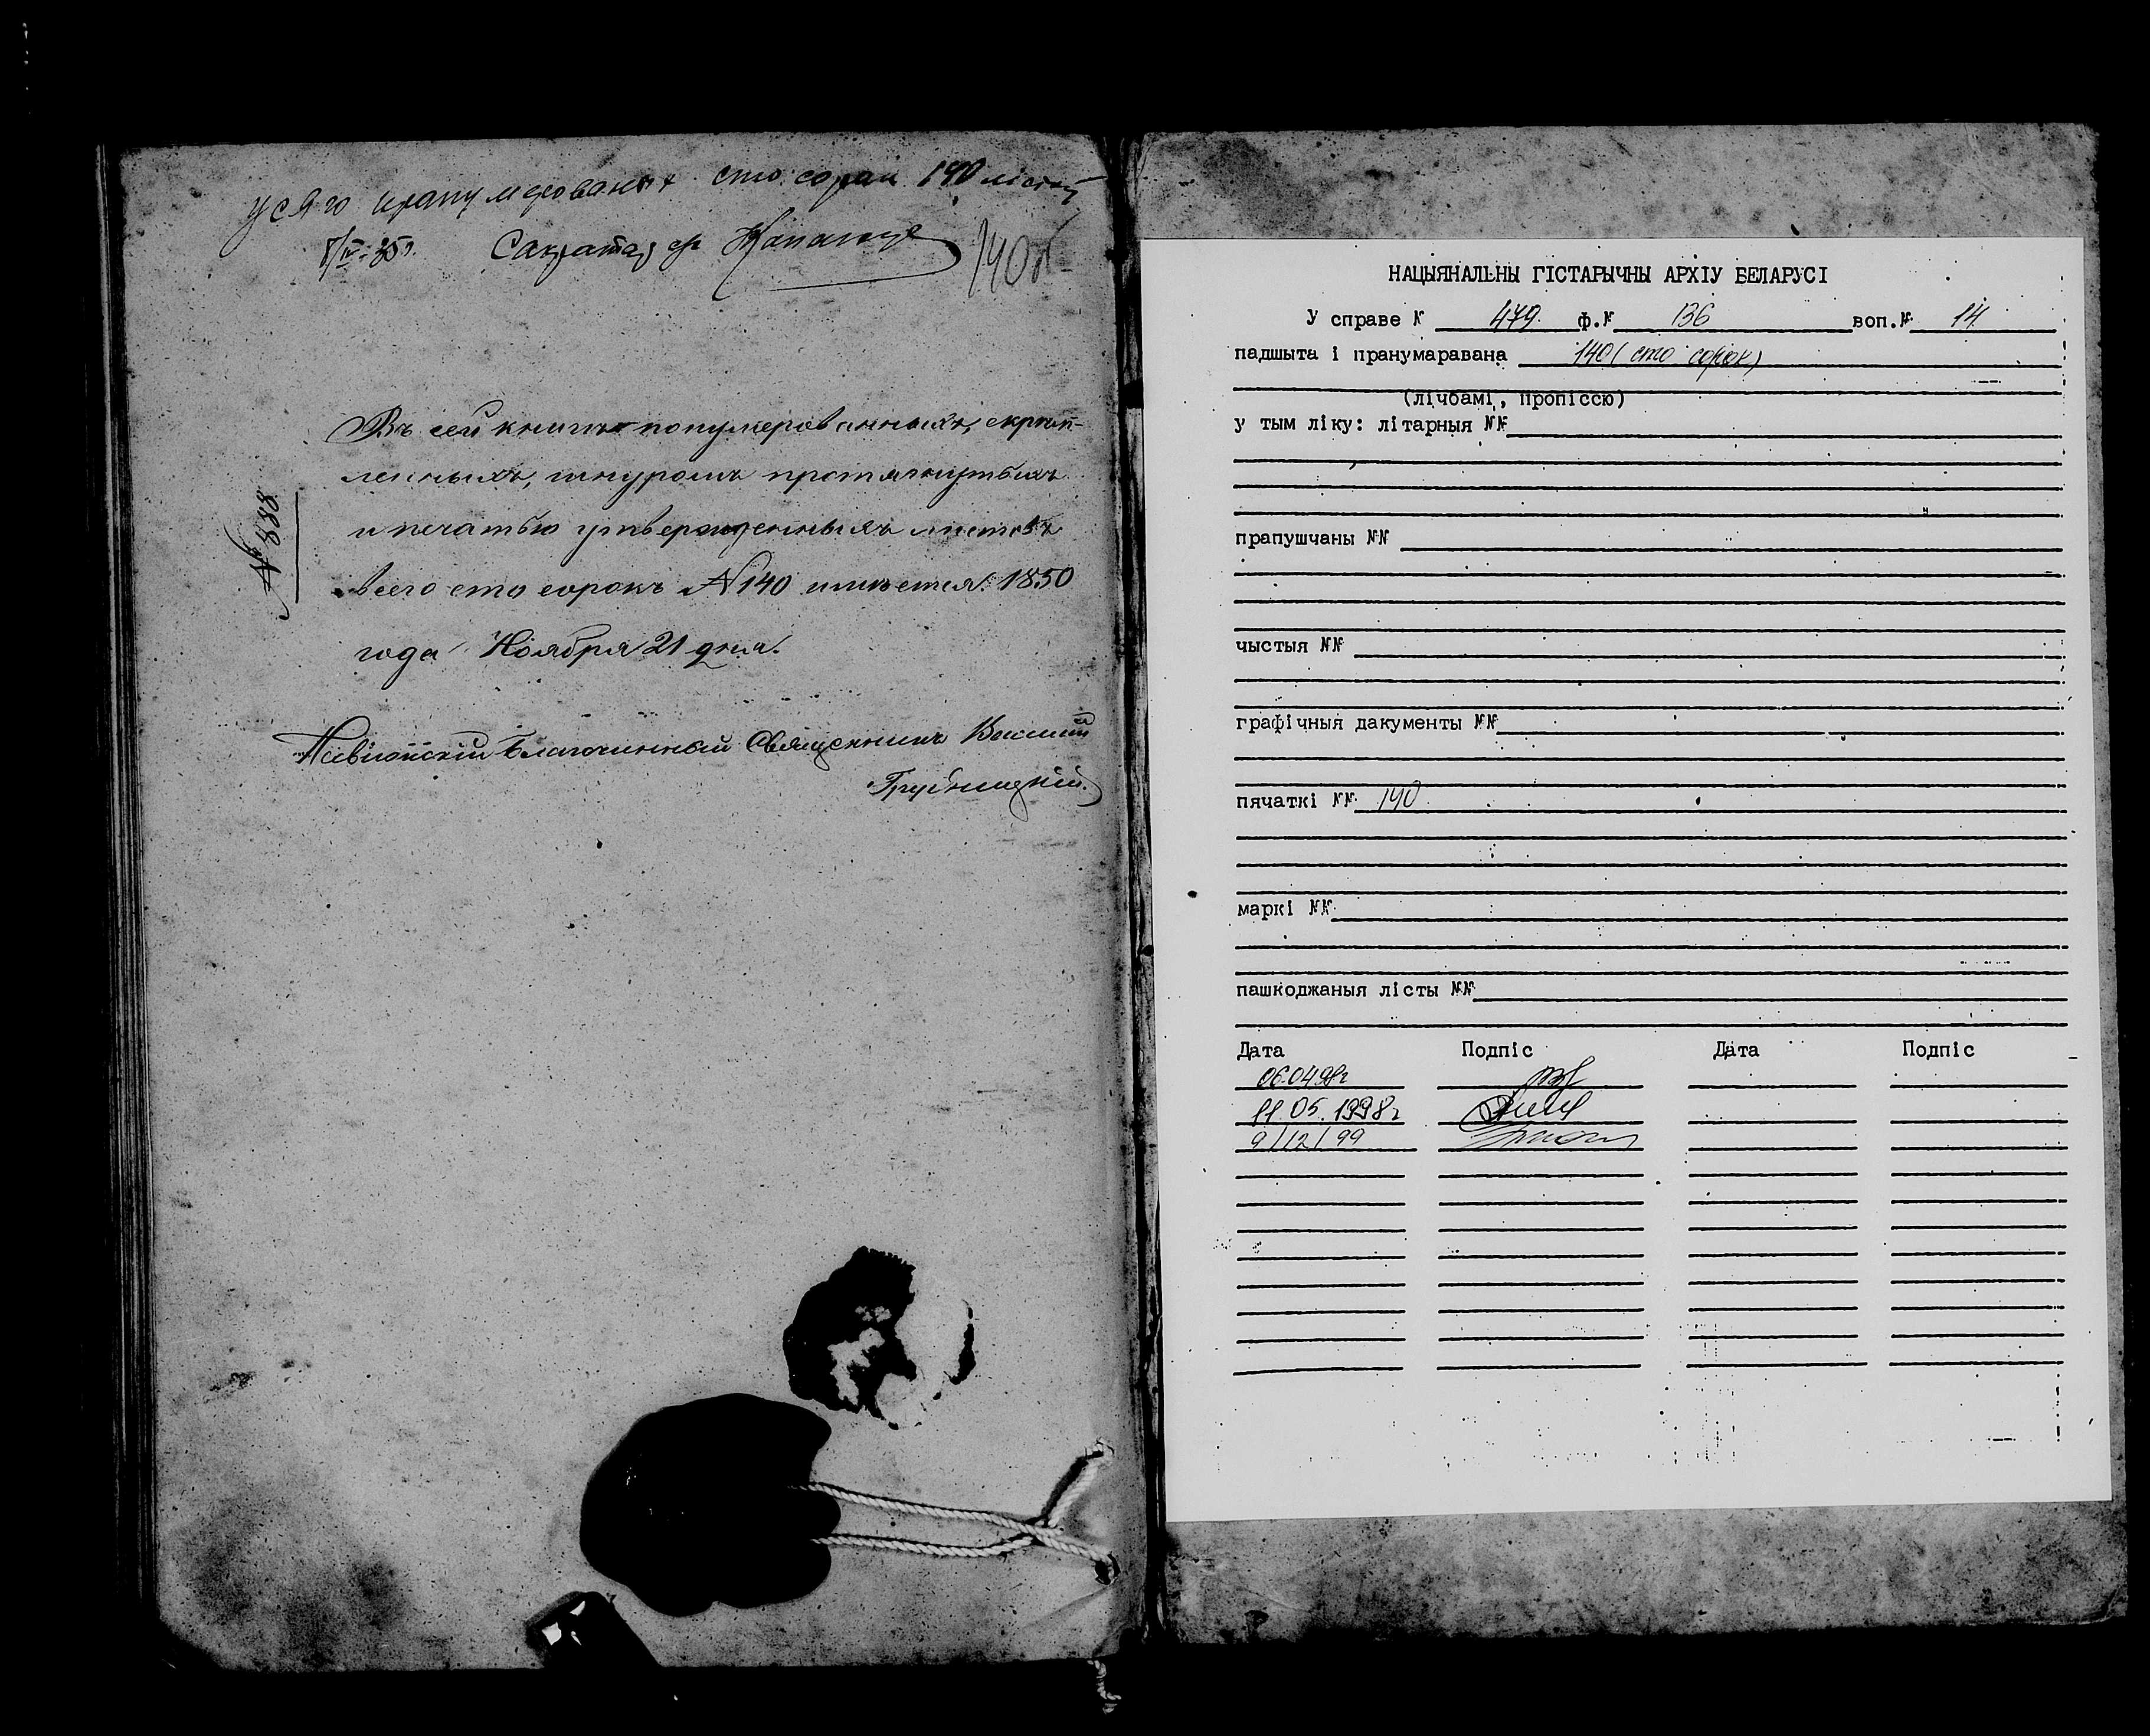 усяго пранумерованых сто сорак 140 лістоў
8/IV-35г. Сакратар
140об
№ 888
Въ сей книгѣ понумерованныхъ, скрѣп-
ленныхъ, шнуромъ протянутыхъ
и печатью утвержденныхъ листовъ
всего сто сорокъ № 140 имѣется. 1850
года Ноября 21 дня.
Благочинный Священникъ Василий
Грубницкій.
НАЦЫЯНАЛЬНЫ ГІСТАРЫЧНЫ АРХІУ БЕЛАРУСІ
У справе № 479. ф.№ 136 воп.№ 14
падшыта і пранумаравана 140 (сто сорок)
(лічбамі, пропіссю)
у тым ліку: літарныя №№
прапушчаны №№
чыстыя №№
графічныя дакументы №№
пячаткі №№ 140
маркі №№
пашкоджаныя лісты №№
Дата Подпіс Дата Подпіс
06.04.98г
11.05.1998г
9/12/99